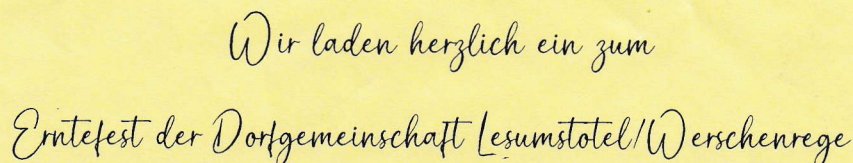 Wir laden herzlich ein zum
Erntefest der Dorfgemeinschaft Lesumstotel/Werschenrege